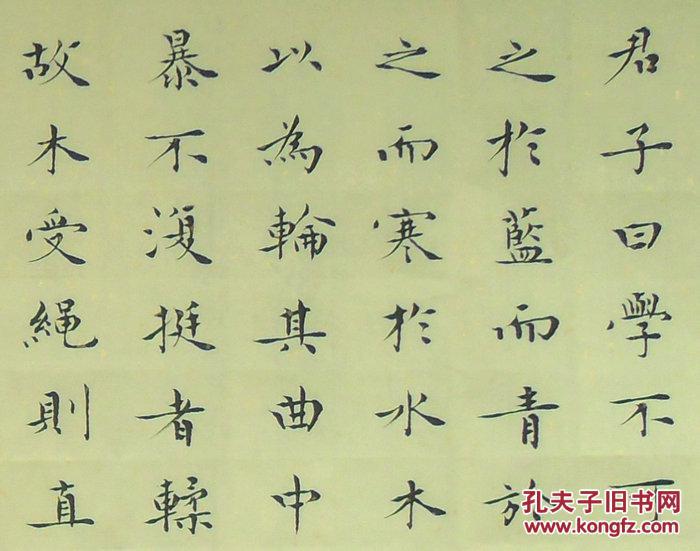 君子曰學不可
之於藍而青於
之而寒於水木
以為輪其曲中
暴不復挺者輮
故木受繩則直
孔夫子旧书网
www.kongfz.com